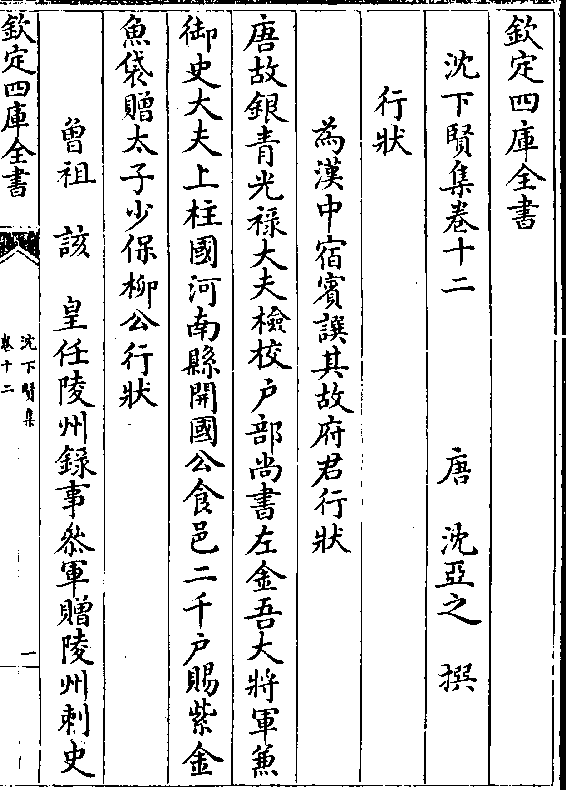 欽定四庫全書
沈下賢集卷十二　唐　沈亞之　撰
行狀
為漢中宿賓譔其故府君行狀
唐故銀青光祿大夫檢校户部尚書左金吾大將軍兼
御史大夫上柱國河南縣開國公食邑二千户賜紫金
魚袋贈太子少保柳公行狀
曾祖　該　皇任陵州録事叅軍贈陵州刺史
欽定四庫全書
沈下賢集
卷十二
一